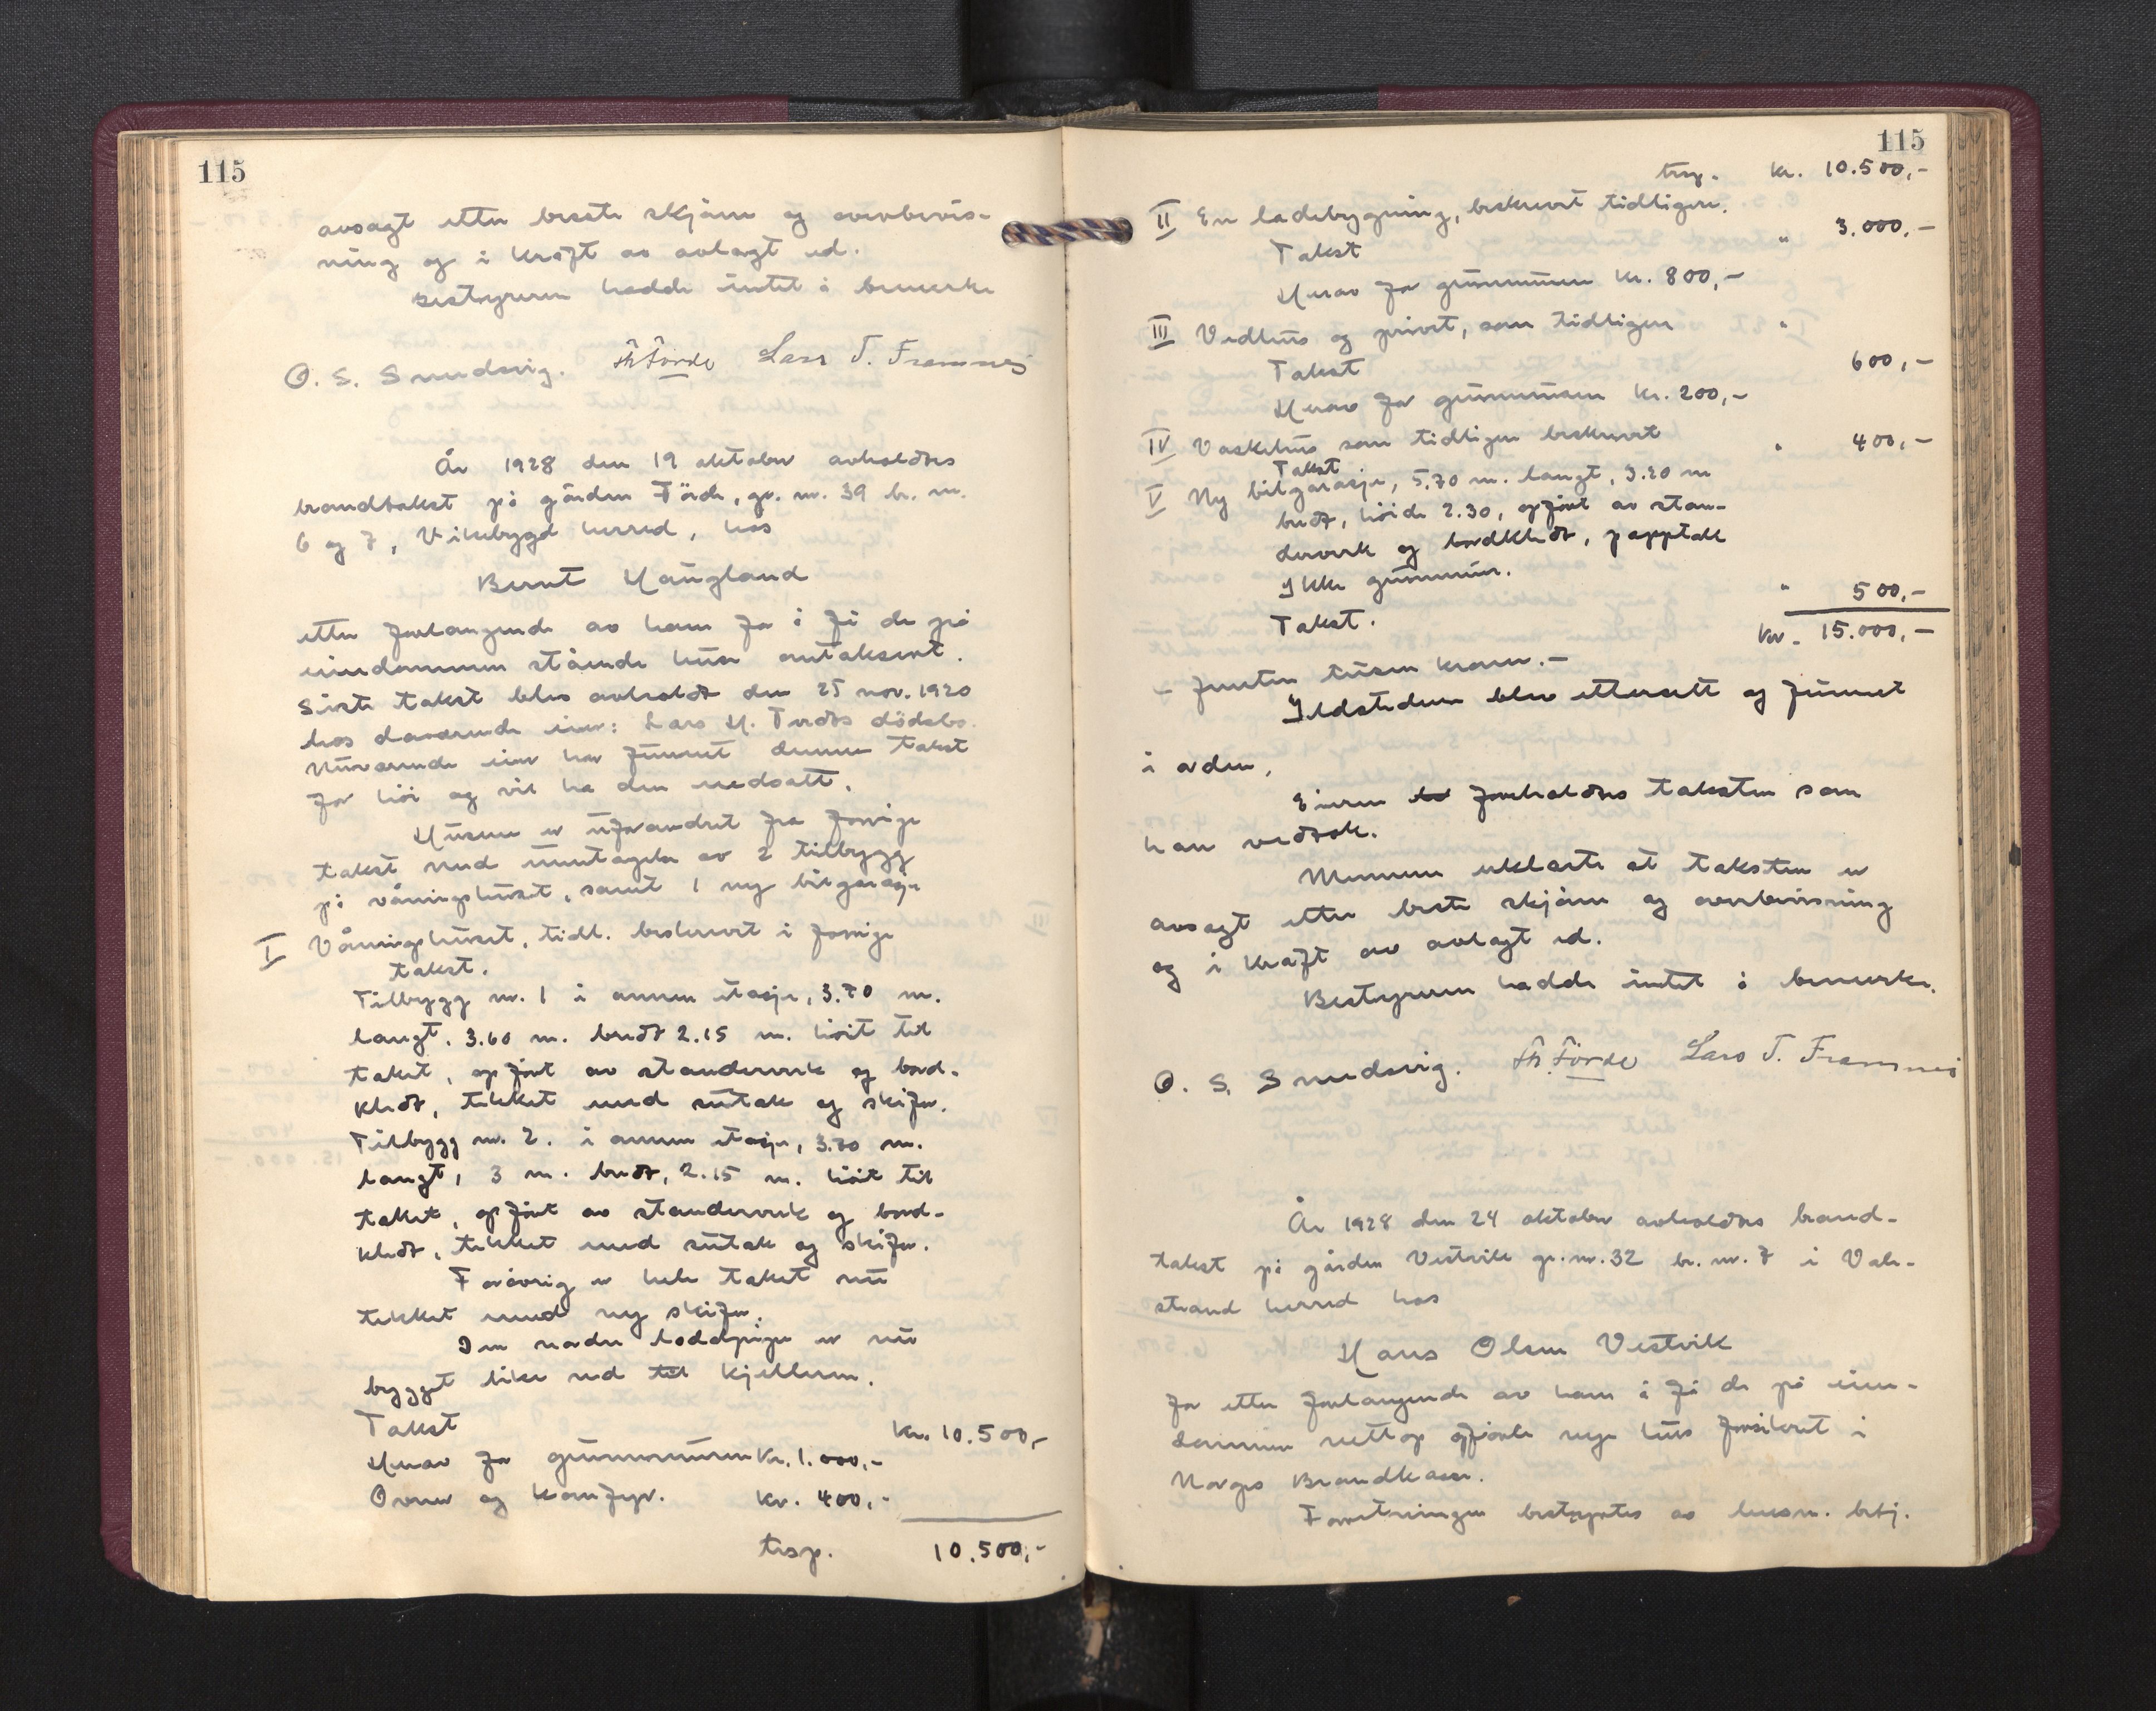 115
avsagt etter beste skjönn og overbevis-
ning og i kraft av avlagt ed.
Bestyreren hadde intet å bemerke
O. S. Smedsvig. Th Förde Lars T. Framnes
År 1928 den 19 oktober avholdtes
brandtakst på gården Förde, gr. nr. 39 br. nr.
6 og 7, Vikebygd herred, hos
Bernt Haugland
etter forlangende av ham for å få de på
eiendommen stående hus omtaksert.
Siste takst blev avholdt den 25 nov. 1920
hos daværende eier: Lars H. Tveits dödsbo.
Nuværende eier har funnet denne takst
for höi og vil ha den nedsatt.
Husene er uforandret fra forrige
takst med unntagelse av 2 tilbygg
på våningshuset, samt 1 ny bilgarasje
I Våningshuset, tidl. beskrevet i forrige
takst.
Tilbygg nr. 1 i annen etasje, 3.70 m.
langt, 3.60 m. bredt 2.15 m. höit til
taket, opfört av stenderverk og bord-
kledt, tekket med sutak og skifer.
Tilbygg nr. 2. i annen etasje, 3.70 m.
langt, 3 m. bredt, 2.15 m. höit til
taket, opfört av stenderverk og bord-
kledt, tekket med sutak og skifer.
Forövrig er hele taket nu
tekket med ny skifer.
Den nordre loddpipe er nu
bygget like ned til kjelleren.
Takst kr. 10.500,-
Herav for grunnmuren kr. 1.000,-
Ovner og komfyr. kr. 400,-
trsp. 10.500,-
115
trsp. kr. 10.500,-
II En ladebygning, beskrevet tidligere.
Takst " 3.000,-
Herav for grunnmuren kr. 800,-
III Vedhus og privet, som tidligere "
Takst 600,-
Herav for grunnmuren kr. 200,-
IV Vaskehus som tidligere beskrevet " 400,-
Takst
V Ny bilgarasje, 5.70 m. langt, 3.20 m
bredt, höide 2.30, opfört av sten-
derverk og bordkledt, papptak
Ikke grunnmur.
Takst. " 500,-
kr. 15.000,-
- femten tusen kroner. -
Ildstedene blev ettersett og funnet
i orden.
Eieren foreholdtes taksten som
han vedtok.
Mennene erklærte at taksten er
avsagt etter beste skjönn og overbevisning
og i kraft av avlagt ed.
Bestyreren hadde intet å bemerke.
O. S. Smedsvig. Th. Förde Lars T. Framnes
År 1928 den 24 oktober avholdtes brand-
takst på gården Vestvik gr. nr. 32 br. nr. 7 i Vale-
strand herred hos
Hans Olsen Vestvik
for etter forlangende av ham å få de på eien-
dommen nettop opförte nye hus forsikret i
Norges Brandkasse.
Forretningen bestyrtes av lensm. betj.